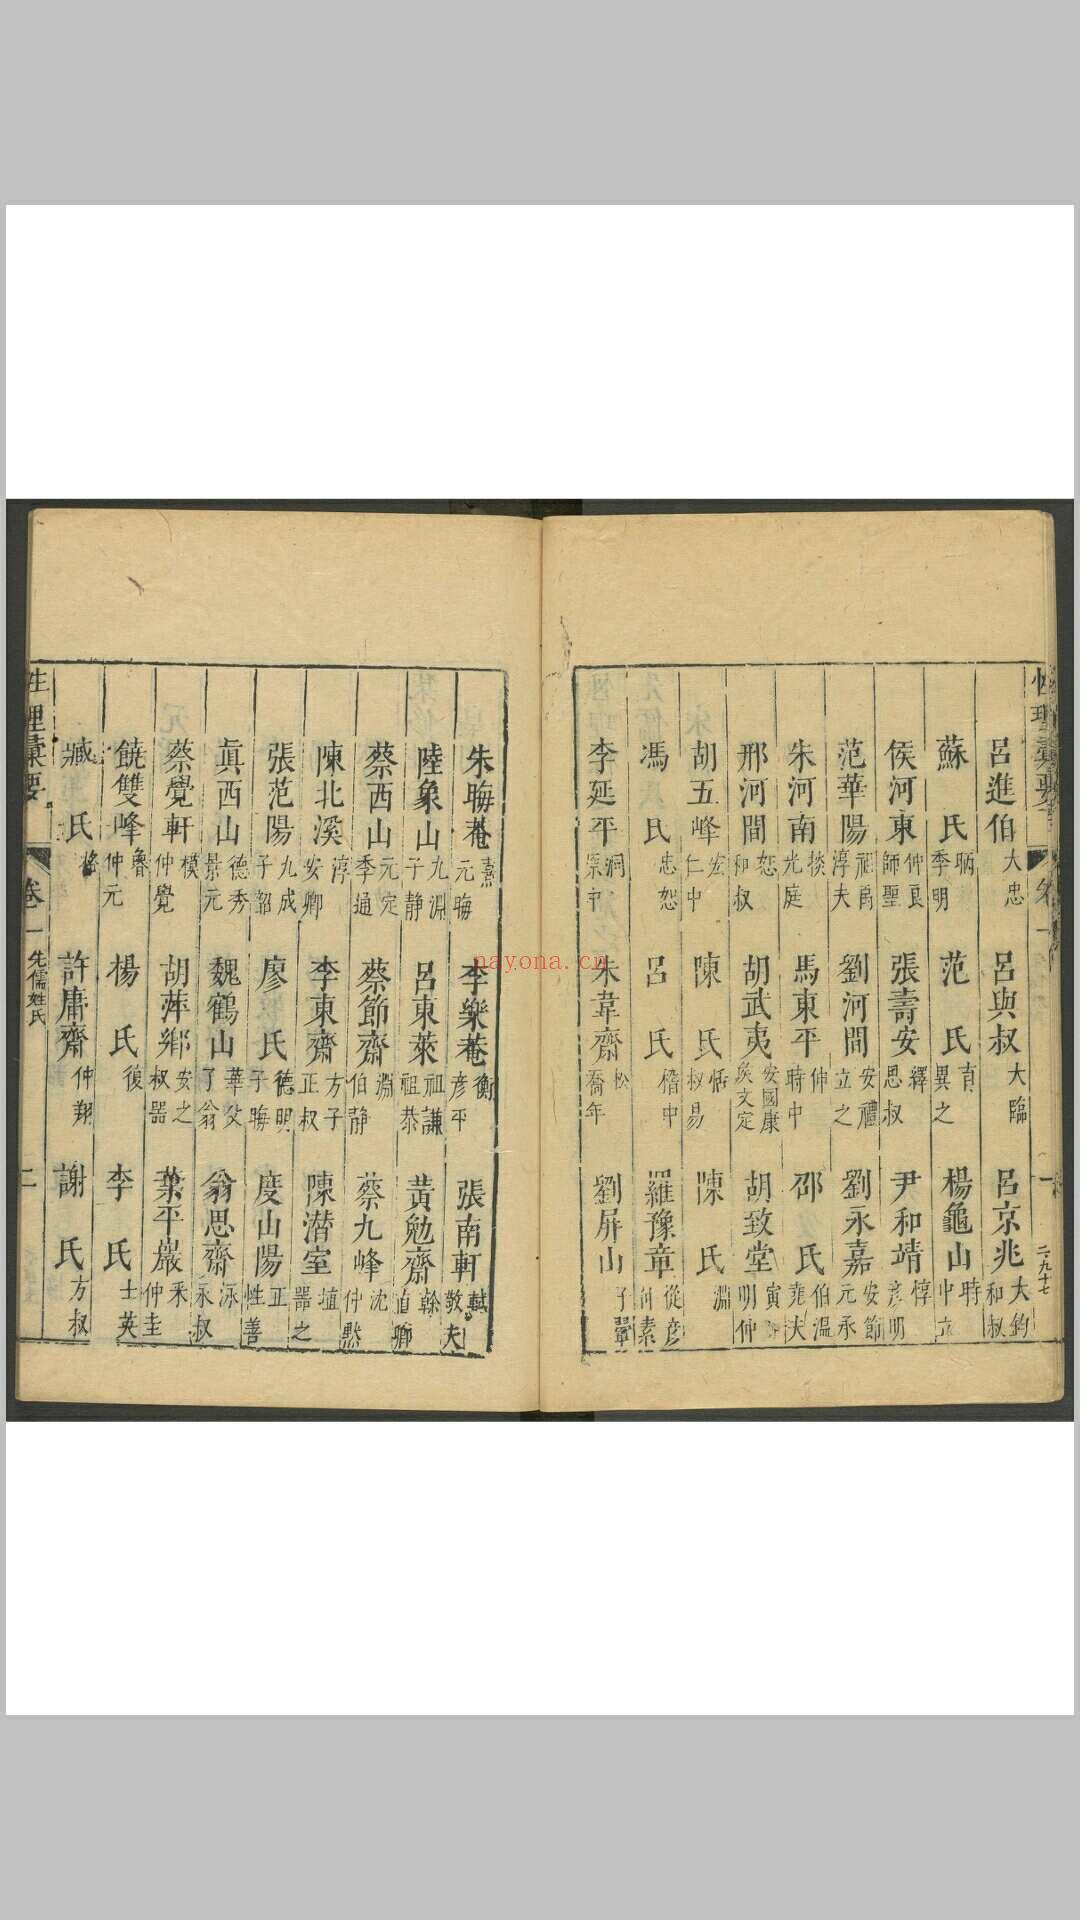 呂進伯 大忠 呂與叔 大臨 呂京兆 大鈞 和叔
蘇氏 昞 季明 范氏 育 巽之 楊龜山 時 中立
侯河東 仲良 師聖 張壽安 繹 思叔 尹和靖 惇 彥明
范華陽 祖禹 淳夫 劉河間 安禮 立之 劉永嘉 安節 元承
朱河南 掞 光庭 馬東平 伸 時中 邵氏 伯溫 堯夫
邢河間 恕 和叔 胡武夷 安國康 矦文定 胡致堂 寅 明仲
胡五峰 宏 仁中 陳氏 恬 叔易 陳氏 淵
馮氏 忠恕 呂氏 稽中 羅豫章 從彥 仲素
李延平 侗 朱韋齋 松 喬年 劉屏山 子翬
朱晦菴 熹 元晦 李樂菴 衡 彥平 張南軒 軾 敬夫
陸象山 九淵 子靜 呂東萊 祖謙 祖恭 黃勉齋 榦 直卿
蔡西山 元定 季通 蔡節齋 淵 伯靜 蔡九峰 沈 仲默
陳北溪 淳 安卿 李東齋 方子 正叔 陳潛室 埴 器之
張范陽 九成 子韶 廖氏 德明 子晦 度山陽 正 性善
眞西山 德秀 景元 魏鶴山 華父 了翁 翁思齋 泳 永叔
蔡覺軒 模 仲覺 胡萍鄉 安之 叔器 葉平巖 采 仲圭
饒雙峰 魯 仲元 楊氏 復 李氏 士英
臧氏 格 許庸齋 仲翔 謝氏 方叔
性理彙要 卷一 先儒姓氏 二
nayona.cn